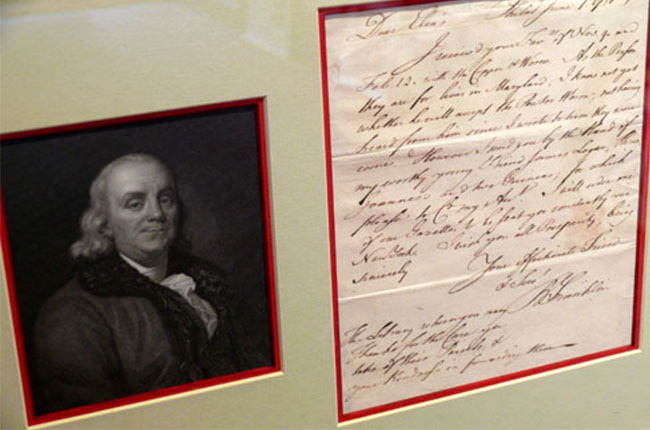 Dear Elias Philad. June
I receiv'd yours of Nov. 9. and
Feb. 12. with the Copper & Worm. As the Person
they are for lives in Maryland, I know not yet
whether he will accept the Pewter Worm, not having
heard from him since I wrote to him they were
come. However I send you by the Hand of
my worthy young Friend James Logan, three
and two Guineas, for which
please to Ct. my Acct. I will order one
of our Gazettes to be sent you constantly via
New York. I wish you all Prosperity, being
sincerely Your Affectionate Friend
B Franklin
The Library return you many
Thanks for the Care you
take of their Parcels &
your Kindness in forwarding them